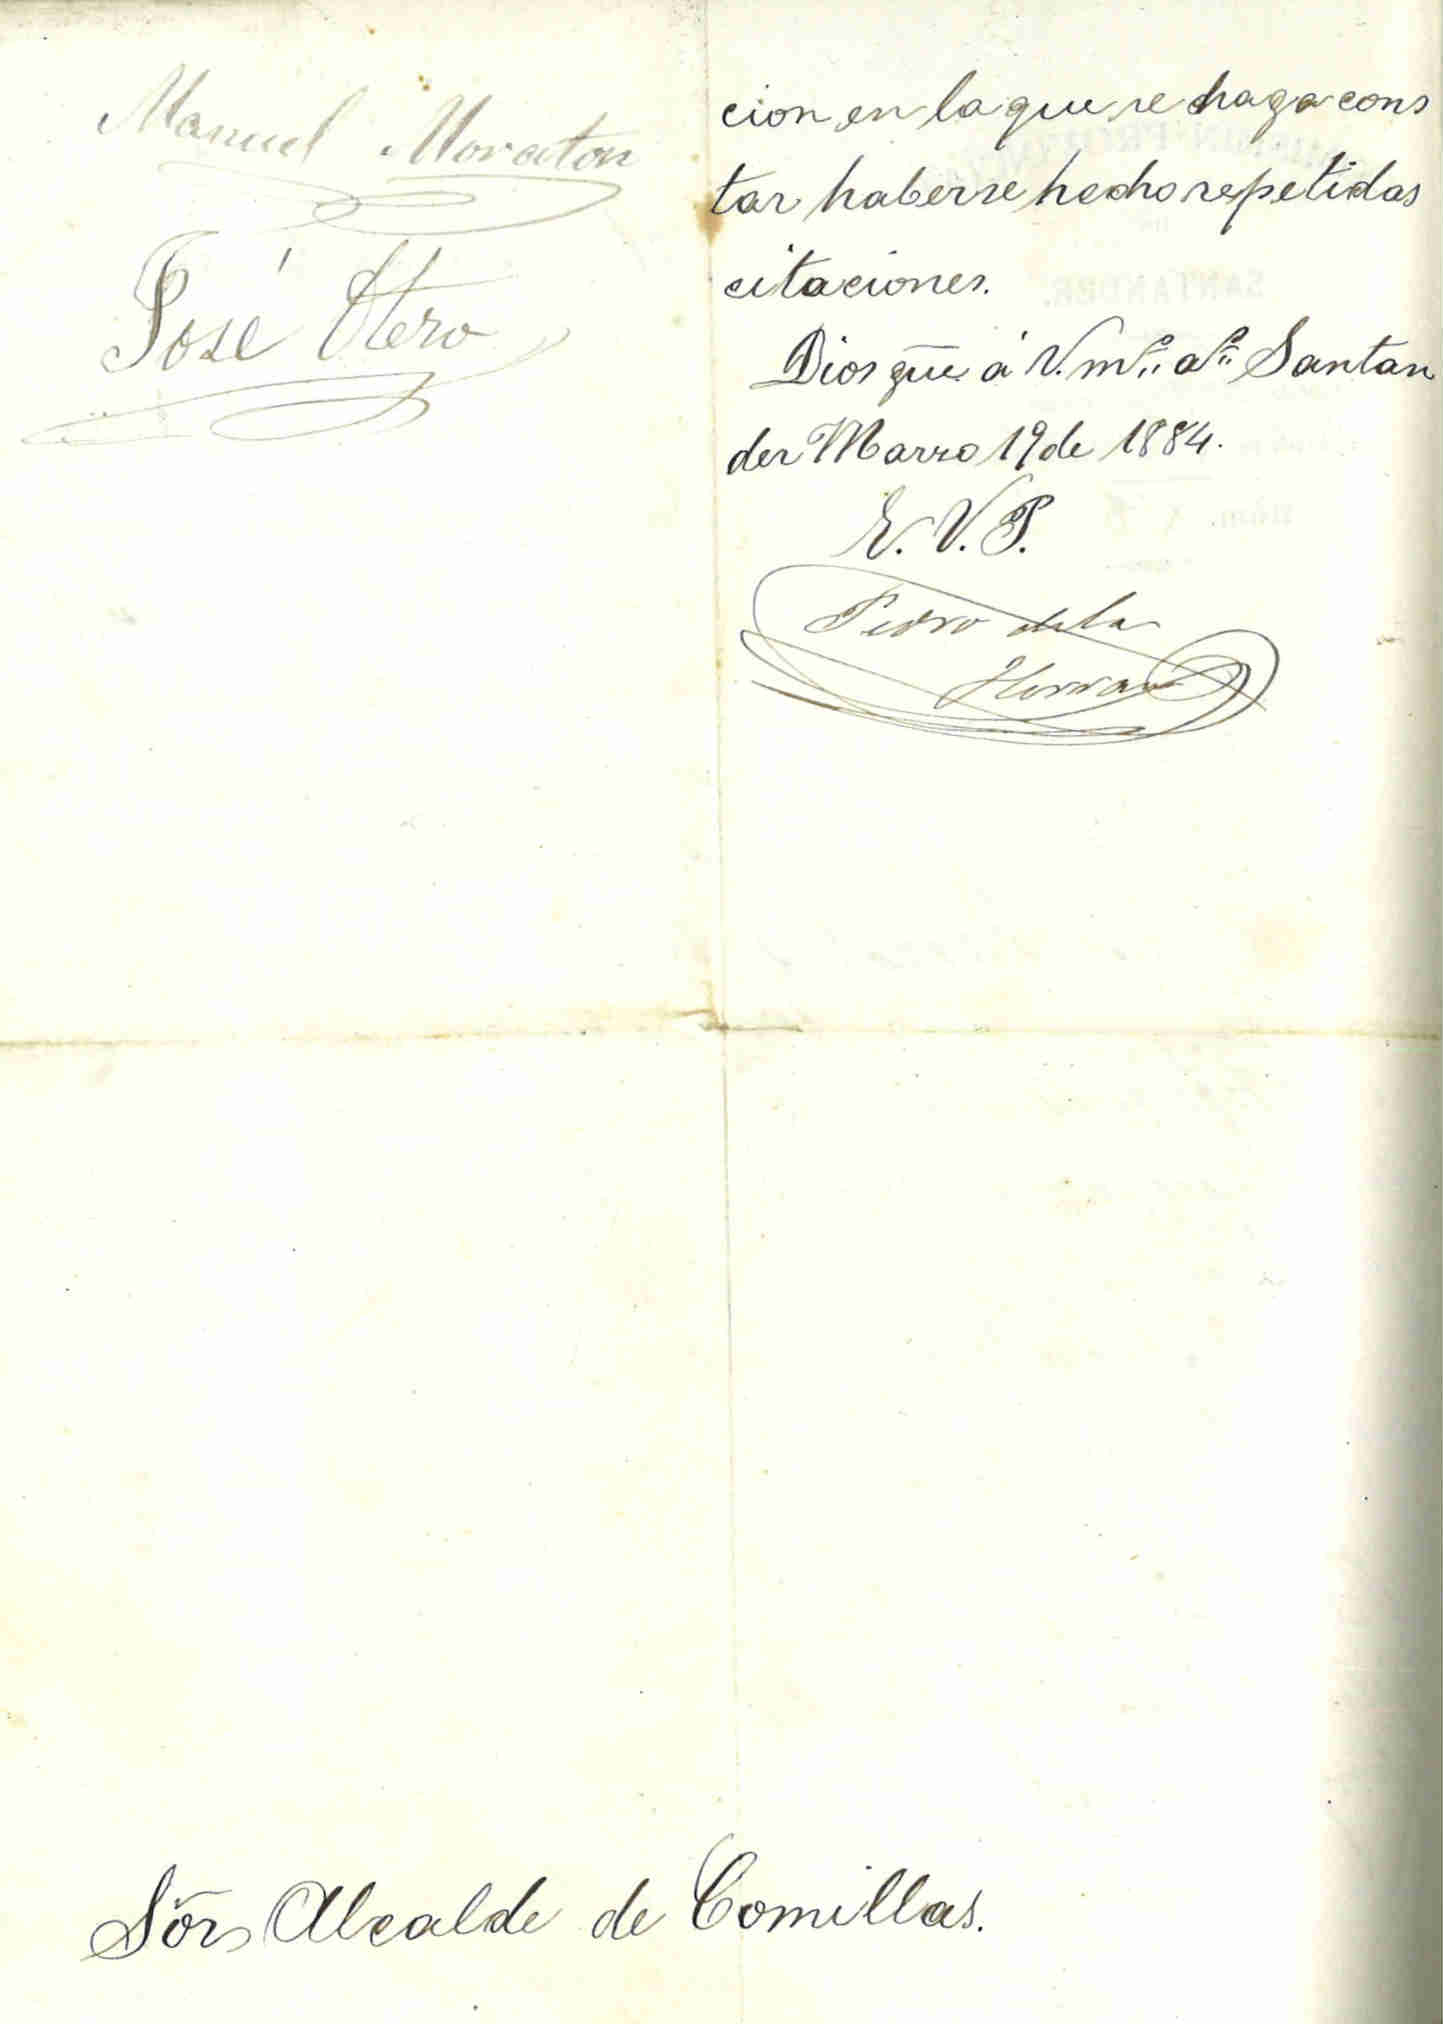 Manuel Moraton
José Otero
cion, en la que se haga cons
tar haberse hecho repetidas
citaciones.
Dios gũe á V. m.ˢ a.ˢ Santan
der Marzo 19 de 1884.
E. V. P.
Pedro de la
Herran
Sõr Alcalde de Comillas.
SANTANDER.